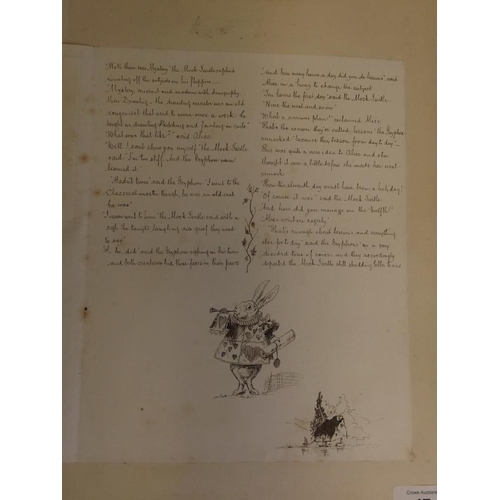 "Well there was Mystery" the Mock Turtle replied
counting off the subjects on his flappers —
"Mystery, ancient and modern with Seaography.
then Drawling — the drawling master was an old
congereel that used to come once a week: he
taught us drawling stretching and fainting in coils"
"What was that like?" said Alice.
"Well I can't show you myself" the Mock Turtle
said: "I'm too stiff. And the Gryphon never
learned it"
"Hadn't time" said the Gryphon: "I went to the
Classical master though, he was an old crab
he was"
"I never went to him" the Mock Turtle said with a
sigh "he taught Laughing and Grief they used
to say"
"So he did" said the Gryphon sighing in his turn
and both creatures hid their faces in their paws
"And how many hours a day did you do lessons" said
Alice in a hurry to change the subject
"Ten hours the first day" said the Mock Turtle
"Nine the next and so on"
"What a curious plan!" exclaimed Alice
"That's the reason they're called lessons" the Gryphon
remarked: "because they lessen from day to day" —
This was quite a new idea to Alice and she
thought it over a little before she made her next
remark
"Then the eleventh day must have been a holiday?"
"Of course it was" said the Mock Turtle
"And how did you manage on the twelfth?"
Alice went on eagerly
"That's enough about lessons and everything
else for to day" said the Gryphon in a very
decided tone of voice: and they accordingly
departed the Mock Turtle still shedding bitter tears
Crows Auction